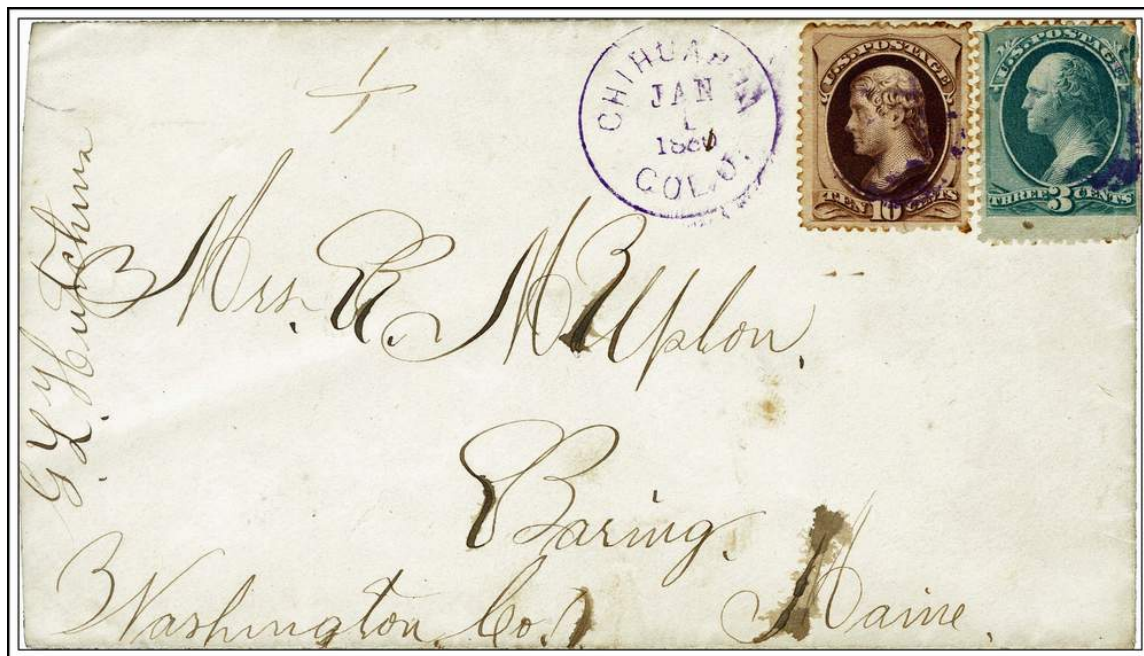 CHIHUAHUA
JAN
1
COLO.
U.S. POSTAGE
TEN 10 CENTS
U.S. POSTAGE
THREE 3 CENTS
Mrs. R. M. Upton.
Baring.
Washington Co. Maine.